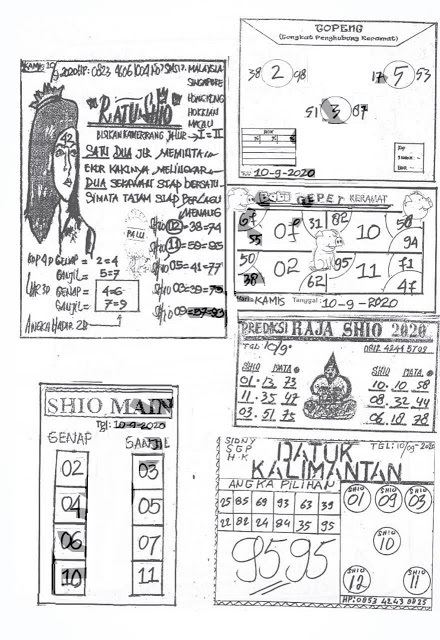 KAMIS 10/9 2020
MALAYSIA
SINGAPORE
HONGKONG
HOKKIAN
MACAU
"RATU SHIO"
SATU DUA JIK MEMINTA
EKOR KAKINYA MELINGKAR
DUA SEKAWAN SIAP BERSATU
SIMATA TAJAM SIAP PERLAGU
MENANG
42
PALU
Shio 02 = 38 = 74
Shio 11 = 59 = 95
Shio 05 = 41 = 77
Shio 03 = 39 = 75
Shio 09 = 57 = 93
KOP 4D GENAP = 2 = 4
GANJIL = 5 = 7
EKR 3D GENAP = 4=6
GANJIL = 7=9
ANGKA HADIR 2B
GOPENG
(Tongkat Penghubung Keramat)
38 2 98
17 5 53
51 3 87
10-9-2020
Babi GEPET KERAMAT
67 07 31 82 10 58
55 94
50 02 95 11 71
38 62 47
Hari: KAMIS Tanggal: 10-9-2020
PREDIKSI RAJA SHIO 2020
TGL 10/9
0812 4244 5709
SHIO MATA
01 . 13 . 73
11 . 35 . 47
03 . 51 . 75
SHIO MATA
10 . 10 . 58
08 . 32 . 44
06 . 18 . 78
SHIO MAIN
Tgl: 10-9-2020
GENAP GANJIL
02 03
04 05
06 07
10 11
SIDNY
SGP
H-K
DATUK
KALIMANTAN
TGL: 10/09-2020
ANGKA PILIHAN
25 85 69 93 63 39
22 82 24 84 35 95
9595
SHIO 01
SHIO 09
SHIO 03
SHIO 10
SHIO 12
SHIO 11
HP: 0853 4243 8835